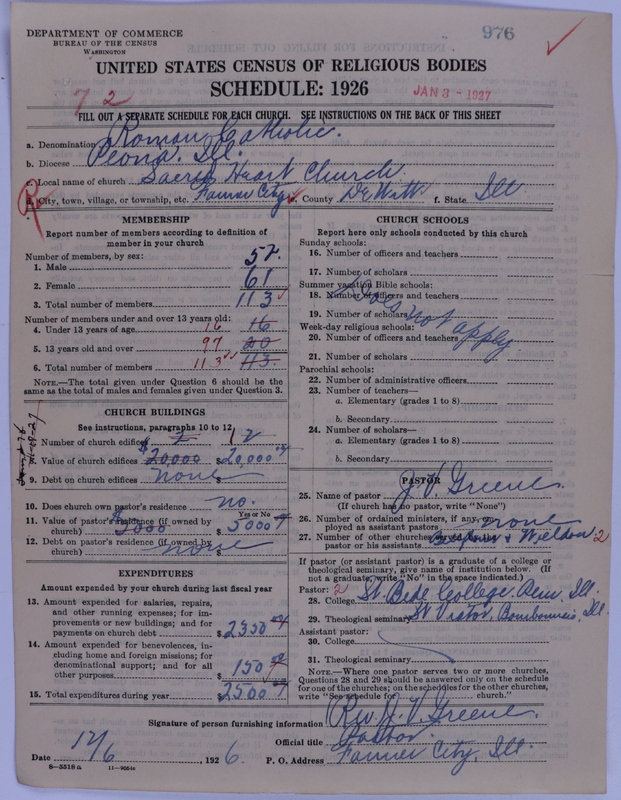 DEPARTMENT OF COMMERCE
BUREAU OF THE CENSUS
WASHINGTON
976
UNITED STATES CENSUS OF RELIGIOUS BODIES
SCHEDULE: 1926
72
JAN 3 - 1927
FILL OUT A SEPARATE SCHEDULE FOR EACH CHURCH. SEE INSTRUCTIONS ON THE BACK OF THIS SHEET
a. Denomination Roman Catholic.
b. Diocese Peoria. Ill.
c. Local name of church Sacred Heart Church.
R
d. City, town, village, or township, etc. Farmer City e. County DeWitt f. State Ill
MEMBERSHIP
Report number of members according to definition of
member in your church
Number of members, by sex:
1. Male 52.
2. Female 61
3. Total number of members 113
Number of members under and over 13 years old:
4. Under 13 years of age 16 16
5. 13 years old and over 97 20
6. Total number of members 113 113
NOTE.—The total given under Question 6 should be
same as the total of males and females given under Question 3.
CHURCH BUILDINGS
See instructions, paragraphs 10 to 12
7. Number of church edifices 2
8. Value of church edifices $20,000 $20,000
9. Debt on church edifices none $
10. Does church own pastor's residence no.
Yes or No
11. Value of pastor's residence (if owned by
church) $5000 $5000
12. Debt on pastor's residence (if owned by
church) none $
EXPENDITURES
Amount expended by your church during last fiscal year
13. Amount expended for salaries, repairs,
and other running expenses; for im-
provements or new buildings; and for
payments on church debt $2350
14. Amount expended for benevolences, in-
cluding home and foreign missions; for
denominational support; and for all
other purposes $150
15. Total expenditures during year $2500
CHURCH SCHOOLS
Report here only schools conducted by this church
Sunday schools:
16. Number of officers and teachers
17. Number of scholars
Summer vacation Bible schools:
18. Number of officers and teachers
19. Number of scholars
Does not apply
Week-day religious schools:
20. Number of officers and teachers
21. Number of scholars
Parochial schools:
22. Number of administrative officers
23. Number of teachers—
a. Elementary (grades 1 to 8)
b. Secondary
24. Number of scholars—
a. Elementary (grades 1 to 8)
b. Secondary
PASTOR
25. Name of pastor J. V. Greene
(If church has no pastor, write "None")
26. Number of ordained ministers, if any, em-
ployed as assistant pastors none
27. Number of other churches served by the
pastor or his assistants & Weldon 2
If pastor (or assistant pastor) is a graduate of a college or
theological seminary, give name of institution below. (If
not a graduate, write "No" in the space indicated.)
Pastor: 2
28. College St. Bede College. Peru, Ill.
29. Theological seminary St Viator, Bourbonnais, Ill.
Assistant pastor:
30. College
31. Theological seminary
NOTE.—Where one pastor serves two or more churches,
Questions 28 and 29 should be answered only on the schedule
for one of the churches; on the schedules for the other churches,
write "See schedule for church."
Signature of person furnishing information Rev. J. V. Greene.
Official title Pastor.
Date 12/6, 1926. P. O. Address Farmer City, Ill.
8—5518 a